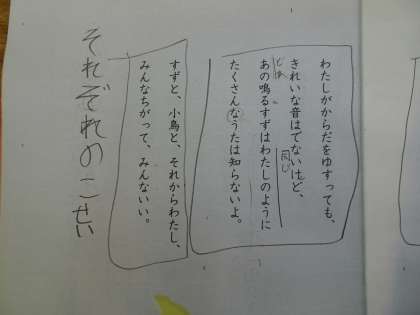 わたしがからだをゆすっても、
きれいな音はでないけど、
あの鳴るすずはわたしのように
同じ
たくさんなうたは知らないよ。
すずと、小鳥と、それからわたし、
みんなちがって、みんないい。
それぞれのこせい